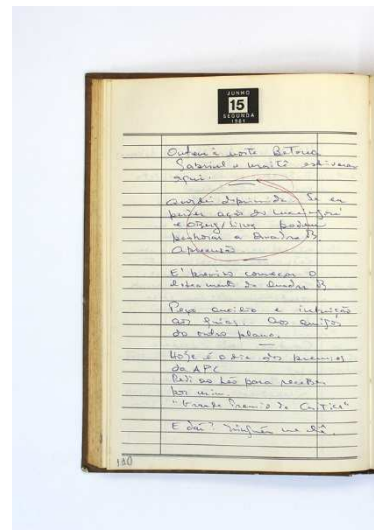 JUNHO
15
SEGUNDA
1981
Ontem à noite Betona
Gabriel e Maitê estiveram
aqui.
Acordei deprimida. Se eu
perder ação da
e podem
penhorar a Quadra B
Apreensão
É preciso começar o
da Quadra B
Peço auxílio e intuição
aos guias. Aos amigos
do outro plano.
Hoje é o dia dos premios
da APC
Pedi ao Leo para receber
por mim.
"Grande Premio da Critica"
E daí? Ninguém me lê.
130